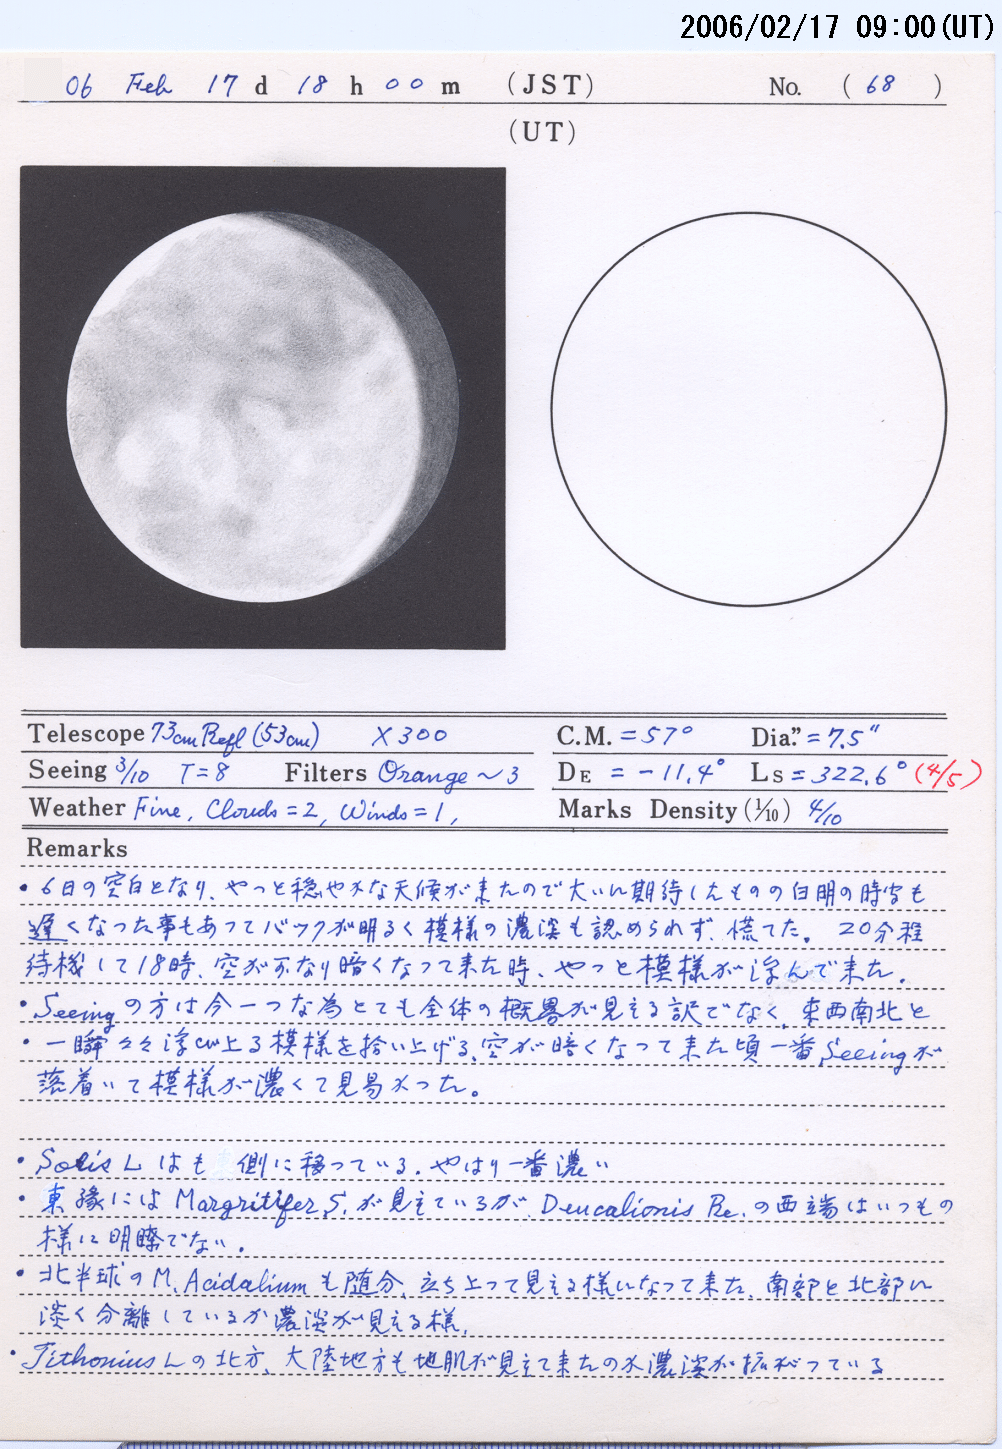 2006/02/17 09:00(UT)
06 Feb 17 d 18 h 00 m (JST) No. (68)
(UT)
Telescope 73cm Refl (53cm) X300
C.M. = 57° Dia." = 7.5"
Seeing 3/10 T=8 Filters Orange ~ 3
DE = -11.4° Ls = 322.6° (4/5)
Weather Fine, Clouds = 2, Winds = 1,
Marks Density (1/10) 4/10
Remarks
• 6日の空白となり、やっと穏やかな天候が来たので大いに期待したものの白明の時宮も
遅くなった事もあってバックが明るく模様の濃淡も認められず、慌てた。 20分程
待機して18時、空がかなり暗くなって来た時、やっと模様が浮んで来た。
• Seeingの方は今一つな為とても全体の概略が見える訳でなく、東西南北と
• 一瞬々々浮び上る模様を拾い上げる、空が暗くなって来た頃一番Seeingが
落着いて模様が濃くて見易かった。
• Solis L はも 側に移っている。やはり一番濃い
• 東縁には Margritifer S. が見えているが Deucalionis Re. の西端はいつもの
様に明瞭でない。
• 北半球のM. Acidaliumも随分、立ち上って見える様になって来た、南部と北部に
淡く分離しているが濃淡が見える様、
• Tithonius Lの北方、大陸地方も地肌が見えて来たのか濃淡が拡がっている